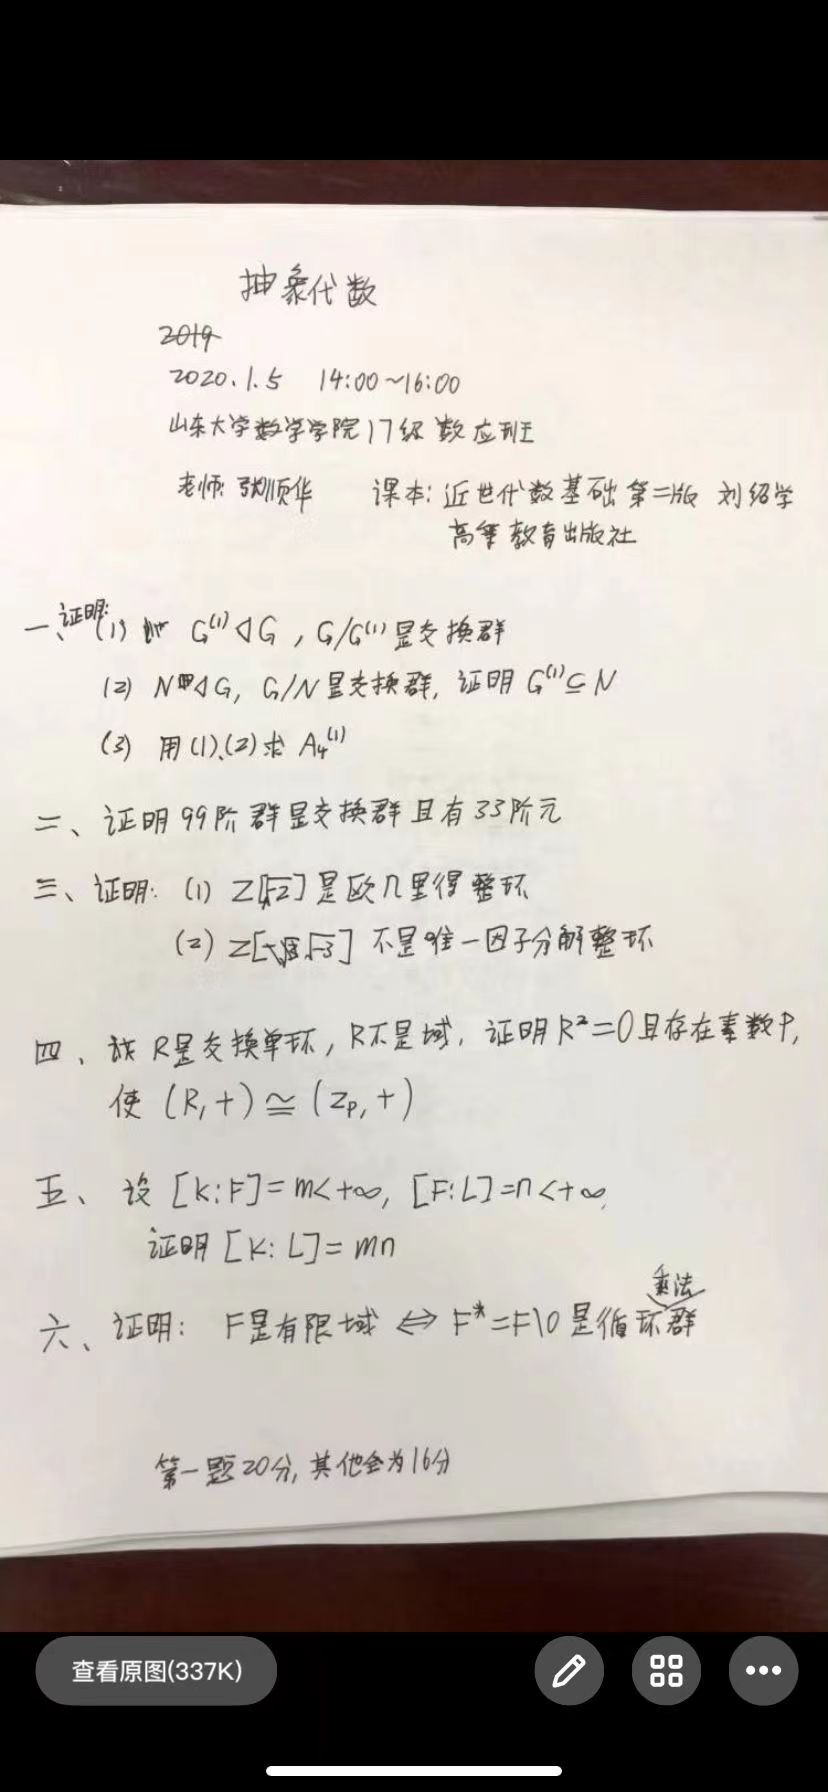 抽象代数
2019
2020.1.5 14:00~16:00
山东大学数学学院17级数应班
老师:张顺华 课本:近世代数基础第二版 刘绍学
高等教育出版社
一、证明:(1) G⁽¹⁾◁G,G/G⁽¹⁾是交换群
(2) N◁G,G/N是交换群,证明G⁽¹⁾⊆N
(3) 用(1)、(2)求A₄⁽¹⁾
二、证明99阶群是交换群且有33阶元
三、证明:(1) Z[√-2]是欧几里得整环
(2) Z[√-3]不是唯一因子分解整环
四、设R是交换单环,R不是域,证明R²=0且存在素数P,
使(R,+)≅(Zₚ,+)
五、设[K:F]=m<+∞,[F:L]=n<+∞,
证明[K:L]=mn
乘法
六、证明:F是有限域⇔F*=F\0是循环群
第一题20分,其他全为16分
查看原图(337K)